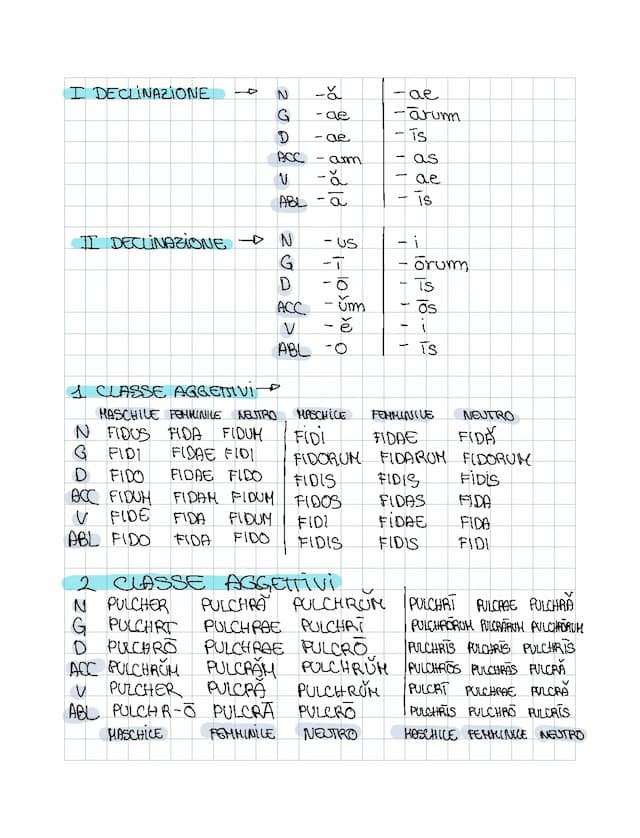 I DECLINAZIONE → N -ă -ae
G -ae -ārum
D -ae -īs
ACC -am -as
V -ă -ae
ABL -ā -īs
II DECLINAZIONE → N -us -i
G -ī -ōrum
D -ō -īs
ACC -ŭm -ōs
V -ĕ -i
ABL -o -īs
1 CLASSE AGGETTIVI →
MASCHILE FEMMINILE NEUTRO MASCHILE FEMMINILE NEUTRO
N FIDUS FIDA FIDUM FIDI FIDAE FIDĂ
G FIDI FIDAE FIDI FIDORUM FIDARUM FIDORUM
D FIDO FIDAE FIDO FIDIS FIDIS FIDIS
ACC FIDUM FIDAM FIDUM FIDOS FIDAS FIDA
V FIDE FIDA FIDUM FIDI FIDAE FIDA
ABL FIDO FIDA FIDO FIDIS FIDIS FIDI
2 CLASSE AGGETTIVI
N PULCHER PULCHRĂ PULCHRŬM PULCHRĪ PULCRAE PULCHRĂ
G PULCHRI PULCHRAE PULCHRĪ PULCHRŌRUM PULCRĀRUM PULCHRŌRUM
D PULCHRŌ PULCHRAE PULCRŌ PULCHRĪS PULCHRĪS PULCHRĪS
ACC PULCHRŬM PULCRĂM PULCHRŬM PULCHRŌS PULCHRĀS PULCRĂ
V PULCHER PULCRĂ PULCHRŬM PULCRĪ PULCHRAE PULCRĂ
ABL PULCHR-Ō PULCRĀ PULCRŌ PULCHRĪS PULCHRŌ PULCRĪS
MASCHILE FEMMINILE NEUTRO MASCHILE FEMMINILE NEUTRO